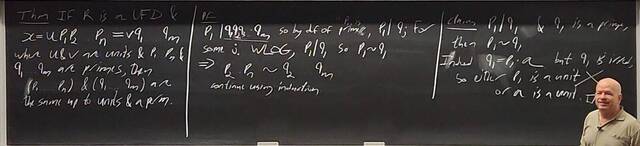 Thm If R is a UFD &
x = u p₁ p₂ … pₙ = v q₁ … qₘ
where u & v are units & p₁ … pₙ &
q₁ … qₘ are primes, then
(p₁ … pₙ) & (q₁ … qₘ) are
the same up to units & a perm.
PF
p₁ | q₁ q₂ … qₘ so by df of prime, p₁ | qⱼ for
some j. WLOG, p₁ | q₁ so p₁ ~ q₁
⇒
p₂ … pₙ ~ q₂ … qₘ
continue using induction
claim p₁ | q₁ & q₁ is a prime,
then p₁ ~ q₁
Indeed q₁ = p₁ · a but q₁ is irred,
so either p₁ is a unit
or a is a unit